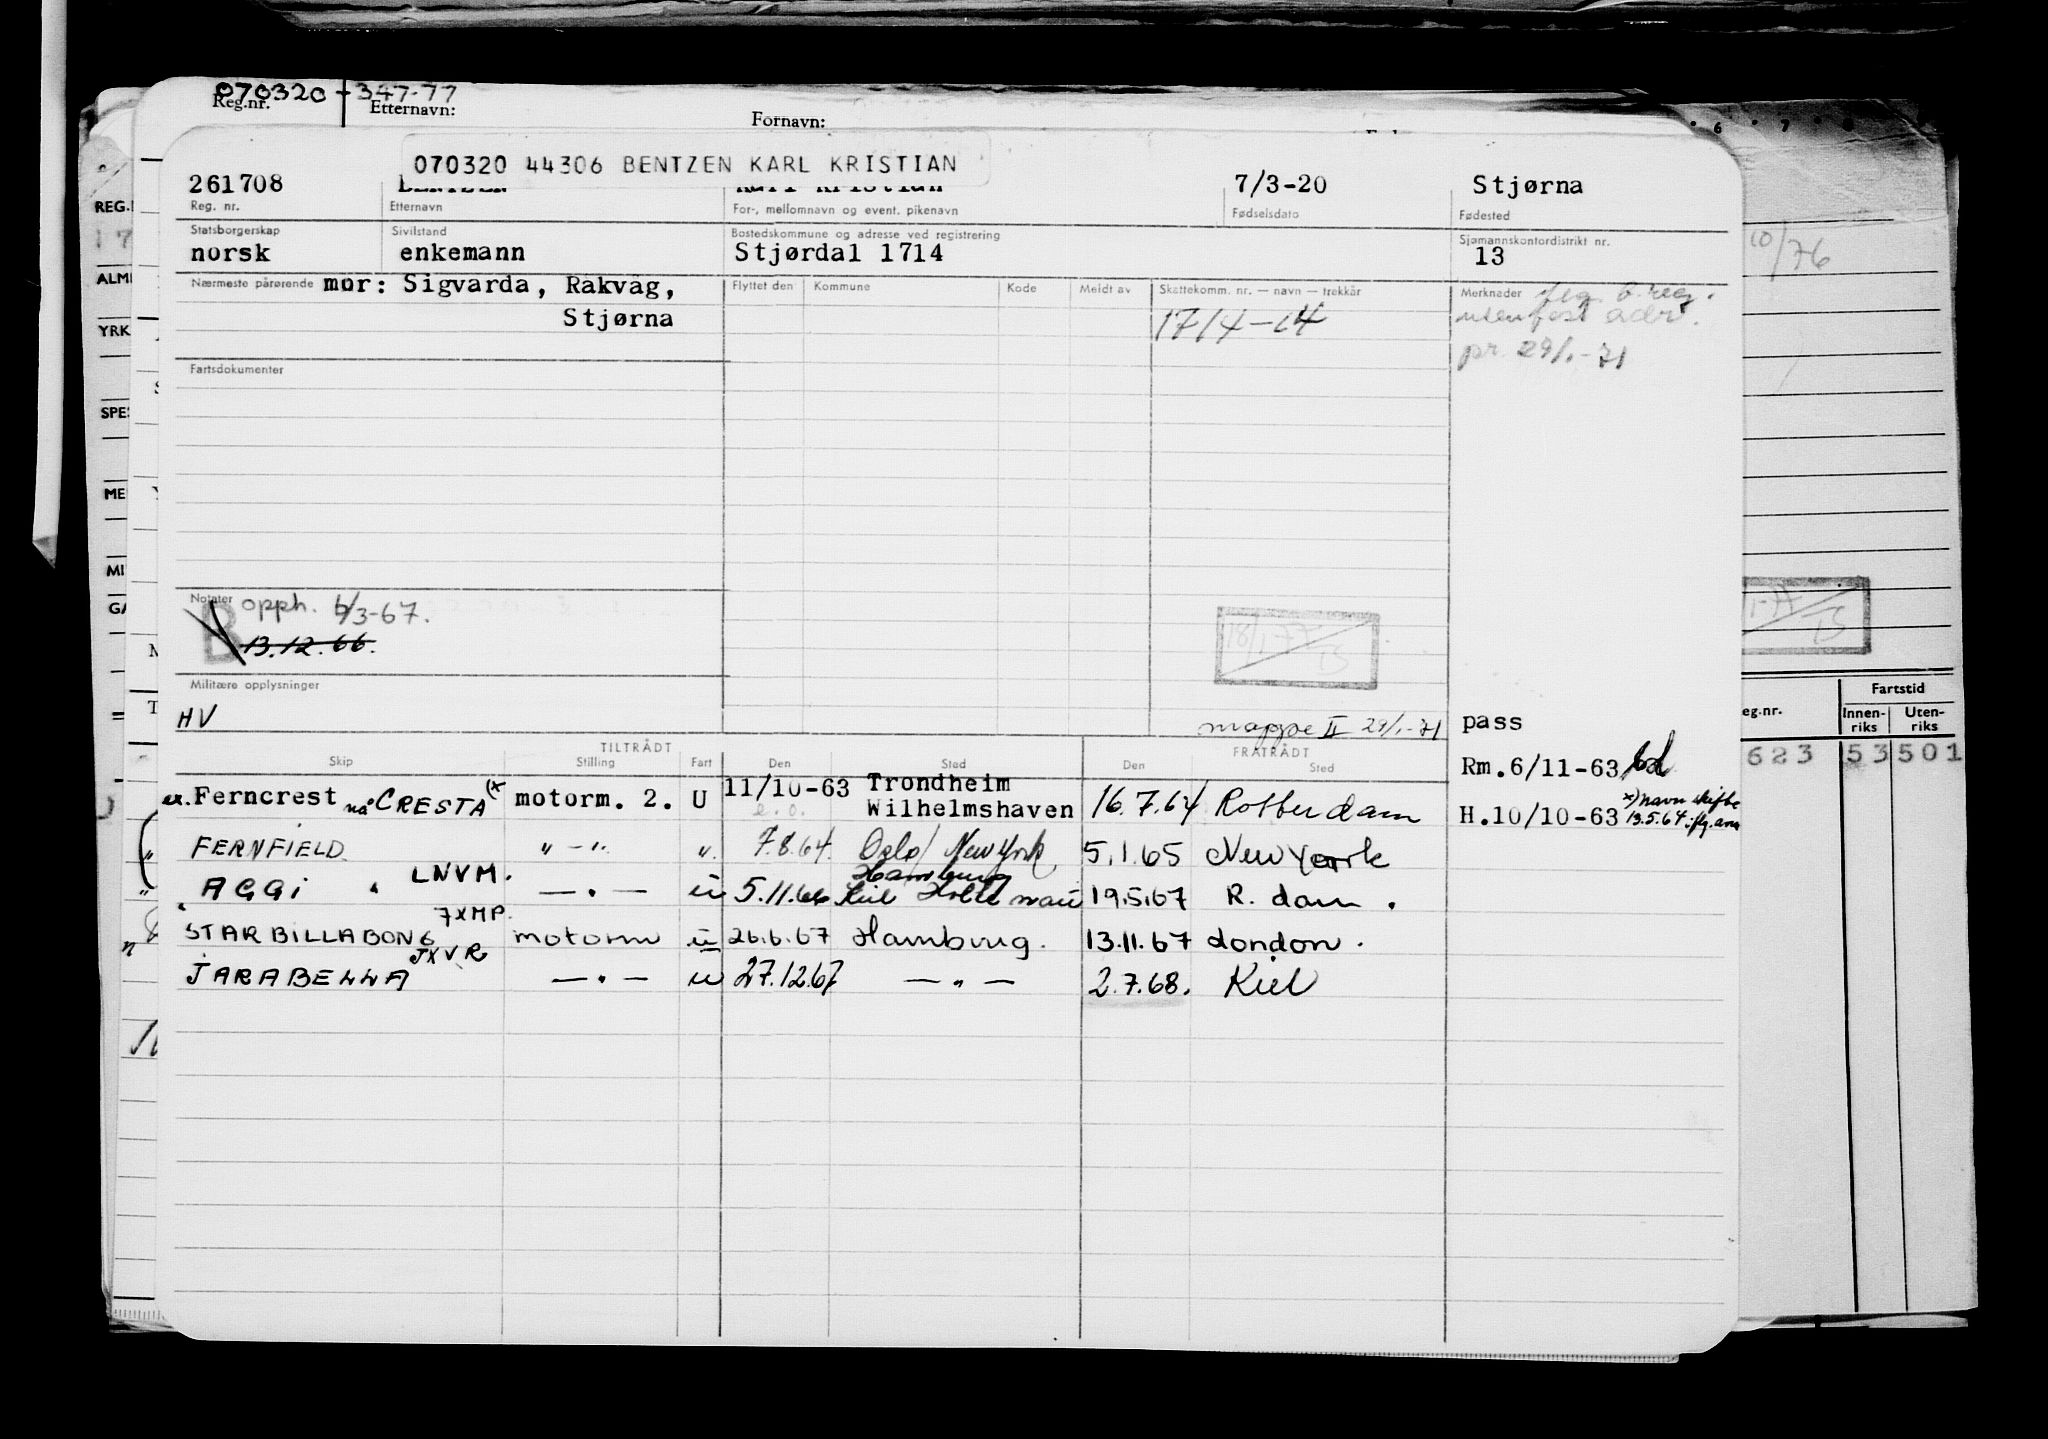 070320 - 347-77
Reg.nr. Etternavn: Fornavn:
070320 44306 BENTZEN KARL KRISTIAN
261708 BENTZEN Karl Kristian 7/3-20 Stjørna
Reg. nr. Etternavn For-, mellomnavn og event. pikenavn Fødselsdato Fødested
Statsborgerskap Sivilstand Bostedskommune og adresse ved registrering Sjømannskontordistrikt nr.
norsk enkemann Stjørdal 1714 13
Nærmeste pårørende mor: Sigvarda, Råkvåg, Flyttet den Kommune Kode Meldt av Skattekomm. nr. — navn — trekkår Merknader flg. b.reg.
Stjørna 1714-14 uten fast adr.
pr. 29/1-71
Fartsdokumenter
Notater opph. 6/3-67.
B 13.12.66.
18/1 77
Militære opplysninger
HV mappe II 29/1-71 pass
TILTRÅDT FRATRÅDT
Skip Stilling Fart Den Sted Den Sted Rm.6/11-63
ex. Ferncrest nå CRESTA (x motorm. 2. U 11/10-63 Trondheim
Wilhelmshaven 16.7.64 Rotterdam H.10/10-63 x) navn skifte
e.o. 13.5.64 iflg.
" FERNFIELD " - " " 7.8.64. Oslo/New York 5.1.65 New York
LNVM. Hamburg
" AGGI — " — u 5.11.66 Kiel Holtenau 19.5.67 R. dam.
7XMP.
STAR BILLABONG motorm u 26.6.67 Hamburg. 13.11.67 London.
JXVR
JARABELLA — " — u 27.12.67 — " — 2.7.68. Kiel
REG.
ALM
YRK
SPE
ME
MI
GA
10/76
Fartstid
eg.nr. Innen-riks Uten-riks
623 53 501